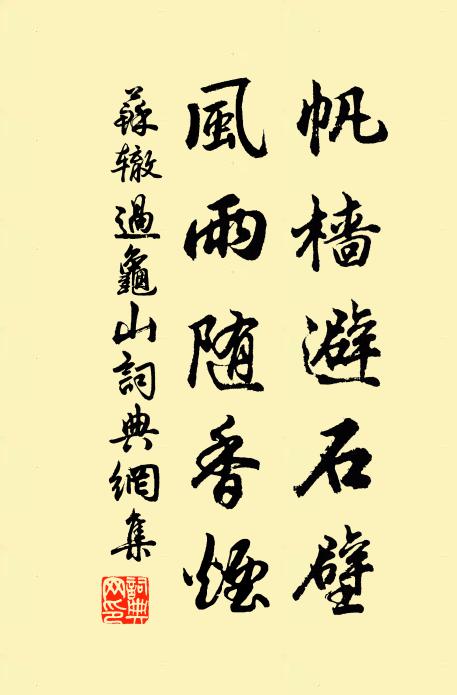 帆檣避石壁
風雨随香煙
蘇辙過龜山詞典網集
詞典網印